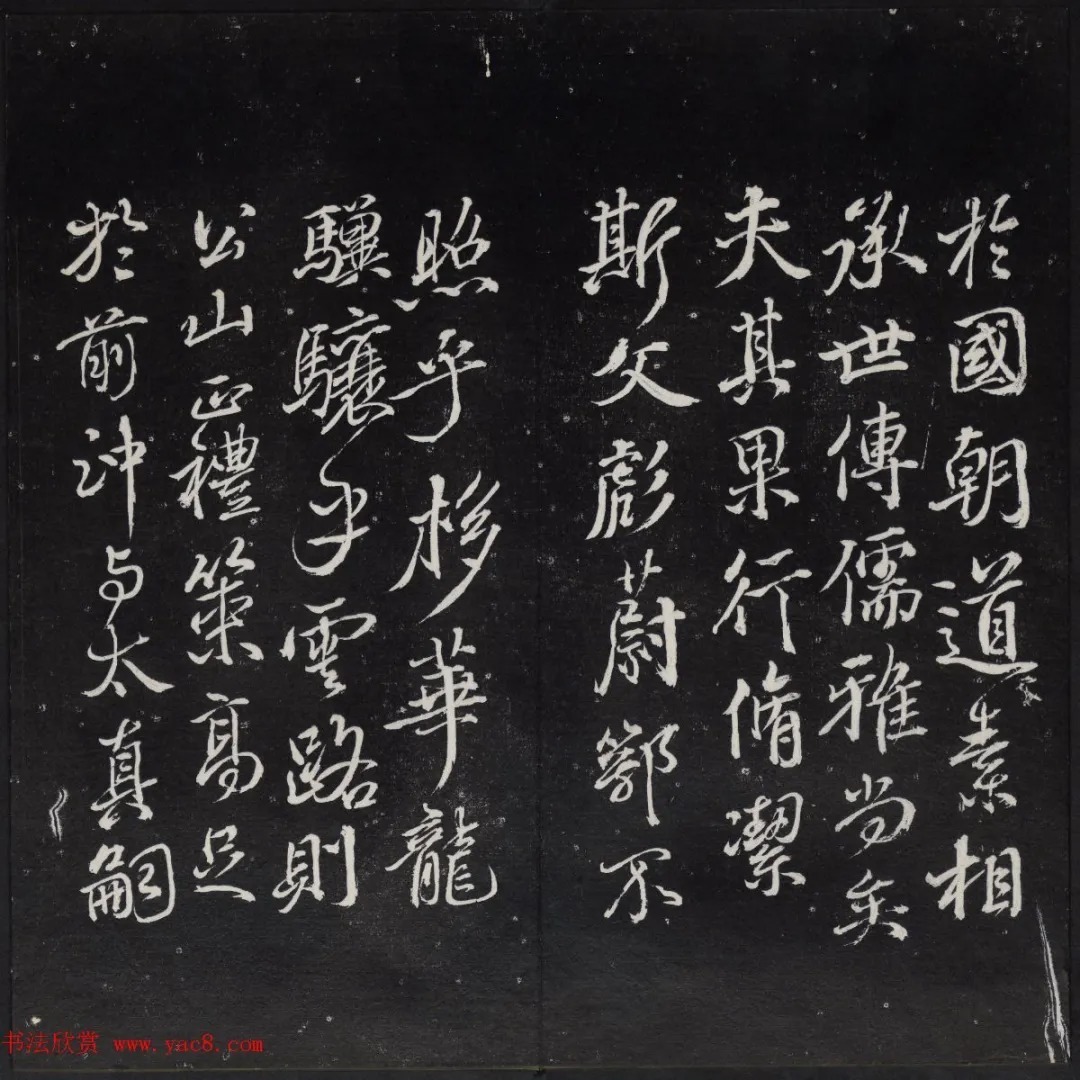 於國朝道素相
承世傳儒雅尚矣
夫其果行脩潔
斯文彪蔚鄂不
照乎栘華龍
驥驤乎雲路則
公山正禮策高足
於前沖与太真嗣
书法欣赏 www.yac8.com